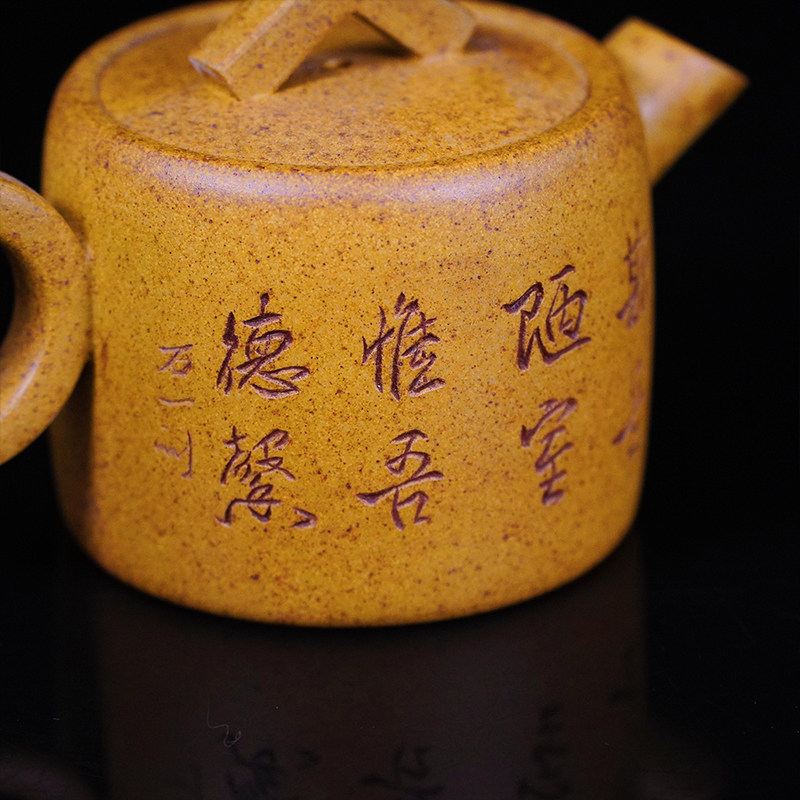 斯是
陋室
惟吾
德馨
石一